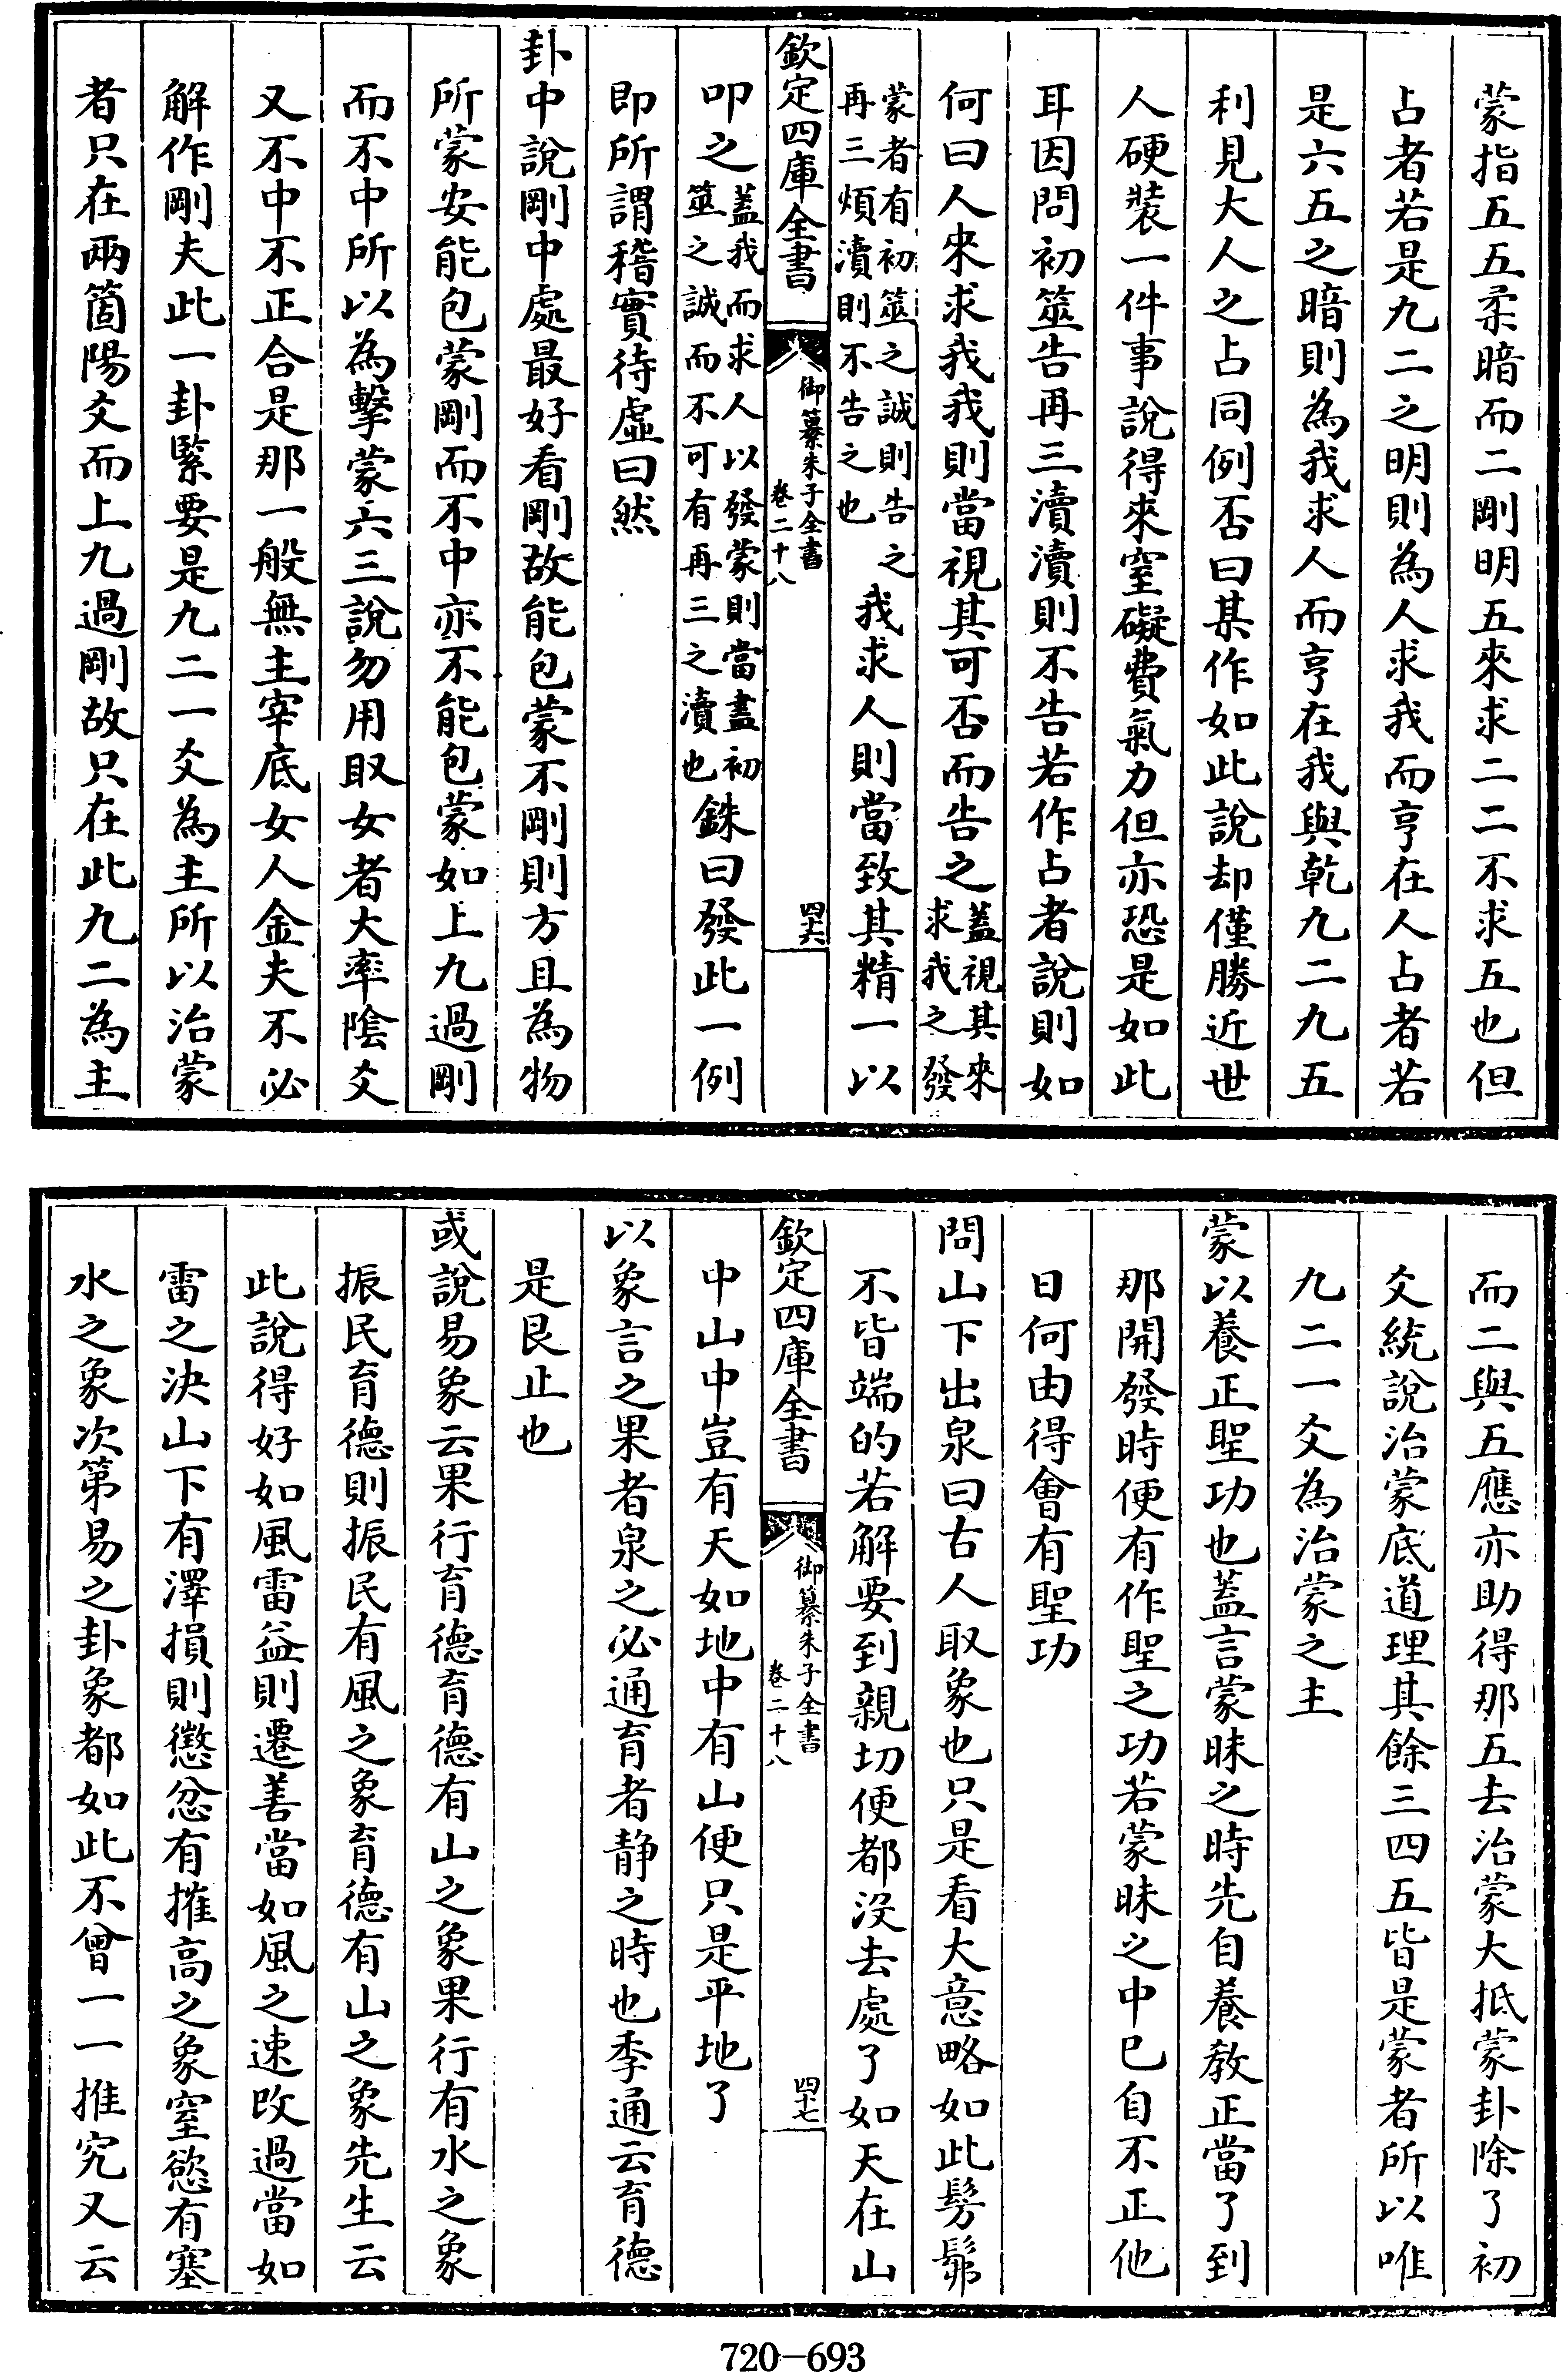 蒙指五五柔暗而二剛明五來求二二不求五也但
占者若是九二之明則為人求我而亨在人占者若
是六五之暗則為我求人而亨在我與乾九二九五
利見大人之占同例否曰某作如此說却僅勝近世
人硬裝一件事說得來窒礙費氣力但亦恐是如此
耳因問初筮告再三瀆瀆則不告若作占者說則如
何曰人來求我我則當視其可否而告之蓋視其來求我之發
蒙者有初筮之誠則告之再三煩瀆則不告之也我求人則當致其精一以
欽定四庫全書 御纂朱子全書 卷二十八 四十六
叩之蓋我而求人以發蒙則當盡初筮之誠而不可有再三之瀆也銖曰發此一例
即所謂稽實待虛曰然
卦中說剛中處最好看剛故能包蒙不剛則方且為物
所蒙安能包蒙剛而不中亦不能包蒙如上九過剛
而不中所以為擊蒙六三說勿用取女者大率陰爻
又不中不正合是那一般無主宰底女人金夫不必
解作剛夫此一卦緊要是九二一爻為主所以治蒙
者只在兩箇陽爻而上九過剛故只在此九二為主
而二與五應亦助得那五去治蒙大抵蒙卦除了初
爻統說治蒙底道理其餘三四五皆是蒙者所以唯
九二一爻為治蒙之主
蒙以養正聖功也蓋言蒙昧之時先自養教正當了到
那開發時便有作聖之功若蒙昧之中已自不正他
日何由得會有聖功
問山下出泉曰古人取象也只是看大意略如此髣髴
不皆端的若解要到親切便都沒去處了如天在山
欽定四庫全書 御纂朱子全書 卷二十八 四十七
中山中豈有天如地中有山便只是平地了
以象言之果者泉之必通育者静之時也季通云育德
是艮止也
或說易象云果行育德育德有山之象果行有水之象
振民育德則振民有風之象育德有山之象先生云
此說得好如風雷益則遷善當如風之速改過當如
雷之決山下有澤損則懲忿有摧高之象窒慾有塞
水之象次第易之卦象都如此不曾一一推究又云
720-693